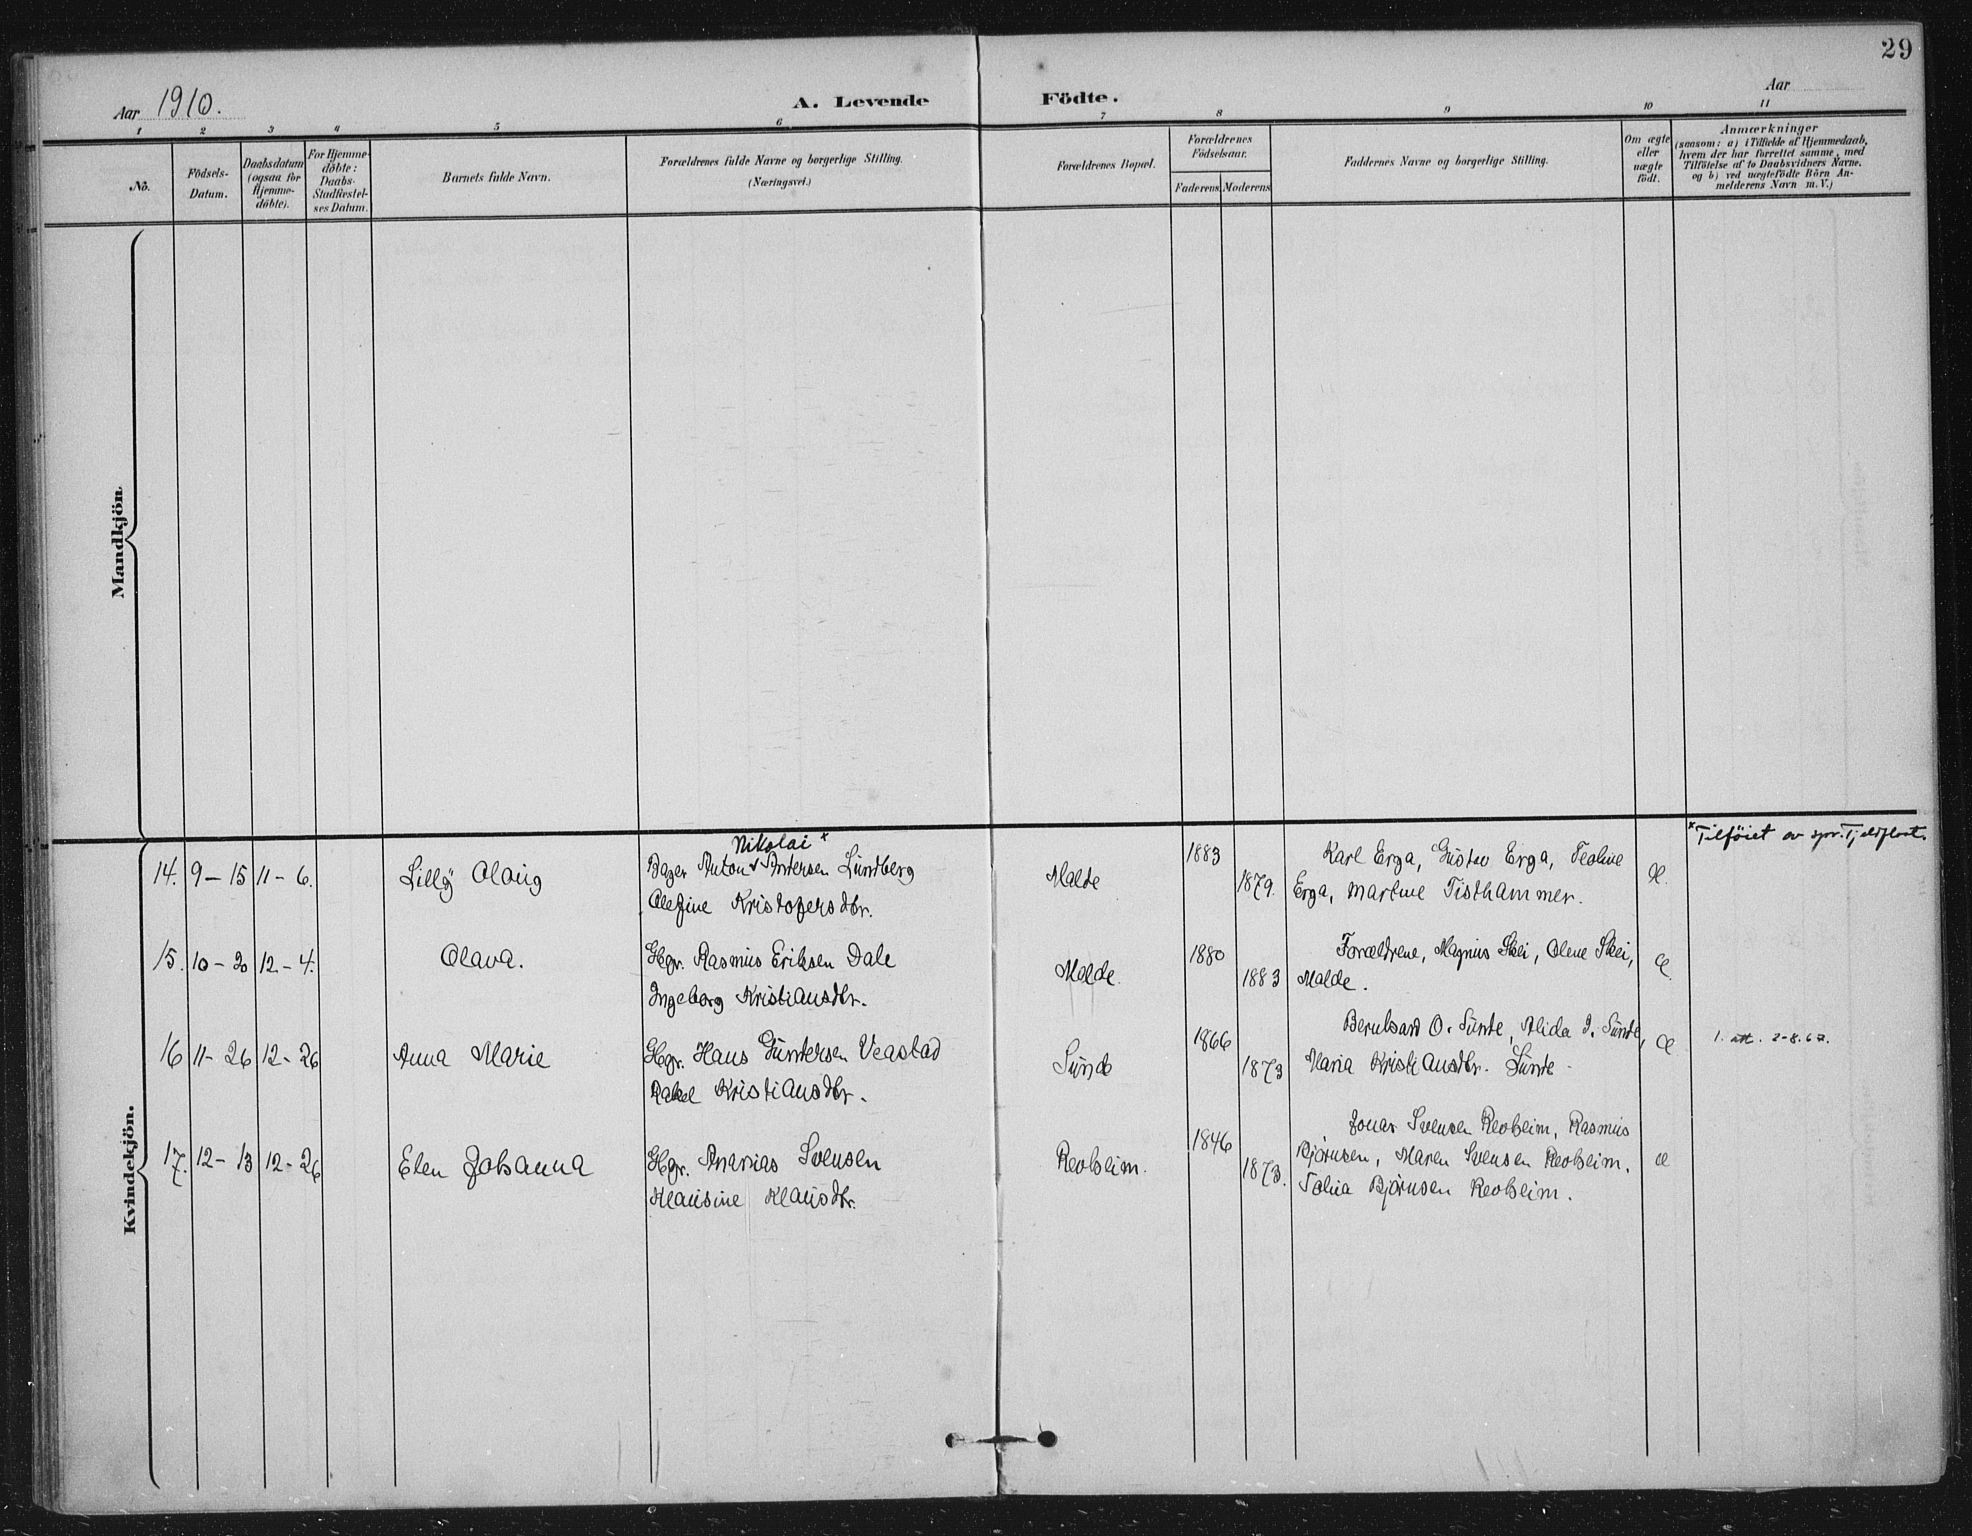 29
Aar 1910.
A. Levende Födte.
Aar
1 2 3 4 5 6 7 8 9 10 11
No.
Födsels-
Datum.
Daabsdatum
(ogsaa for
Hjemme-
döbte).
For Hjemme-
döbte:
Daabs-
Stadfæstel-
ses Datum.
Barnets fulde Navn.
Forældrenes fulde Navne og borgerlige Stilling.
(Næringsvei.)
Forældrenes Bopæl.
Forældrenes
Födselsaar.
Faderens Moderens
Faddernes Navne og borgerlige Stilling.
Om ægte
eller
uægte
født.
Anmærkninger
(saasom: a) i Tilfælde af Hjemmedaab,
hvem der har forrettet samme, med
Tilföielse af to Daabsvidners Navne.
og b) ved uægtefödte Börn An-
melderens Navn m. V.)
Mandkjön.
Kvindekjön.
14. 9-15 11-6. Lilly Olaug
Nikolai x
Bager Anton Andersen Lundberg
Olefine Kristofersdtr.
Malde
1883
1879.
Karl Erga, Gustav Erga, Teoline
Erga, Martine Tisthammer.
Æ.
x Tilføiet av spr.
15. 10-20 12-4. Olava.
Gbgr. Rasmus Eriksen Dale
Ingeborg Kristiansdtr.
Malde.
1880
1883
Forældrene, Magnus Skei, Olene Skei,
Malde.
Æ.
16 11-26 12-26 Anna Marie
Gbgr. Hans Gundersen Veastad
Rakel Kristiansdtr.
Sunde
1866
1873
Bernhard O. Sunde, Alida J. Sunde,
Maria Kristiansdtr. Sunde
Æ
1. att. 2-8.67.
17. 12-13 12-26 Elen Johanna
Gbgr. Ananias Svensen
Klausine Klausdtr.
Revheim.
1846
1873.
Jonas Svensen Revheim, Rasmus
Bjørnsen, Maren Svensen Revheim.
Talia Bjørnsen Revheim.
æ